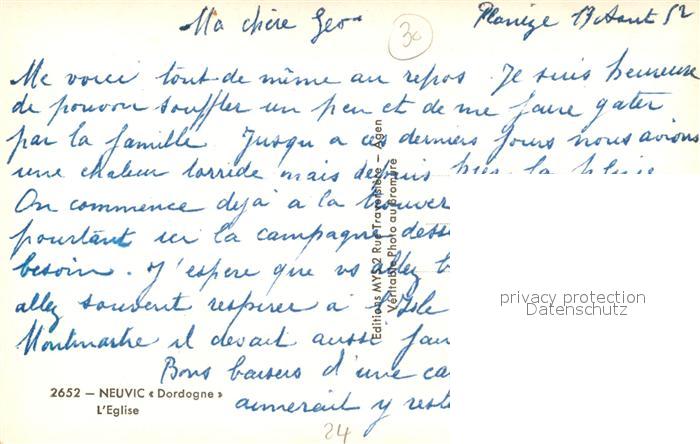 Ma chère Geo
3e
17 Aout 52
Me voici tout de même au repos. Je suis heureuse
de pouvoir souffler un peu et de me faire gater
par la famille. Jusqu'a ces derniers jours nous avions
une chaleur torride mais depuis hier la pluie
On commence dejà a la trouver
pourtant ici la campagne
besoin. J'espere que vs allez
allez souvent respirer à l'Isle
Montmartre il devait aussi
Bons baisers d'une
aimerait y
Editions MYS 2 Rue Traversière — Agen
Véritable Photo au Bromure
2652 — NEUVIC « Dordogne »
L'Eglise
24
privacy protection
Datenschutz